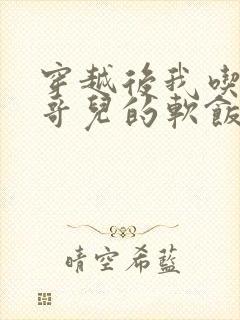 穿越後我喫
哥兒的軟飯
晴空希藍